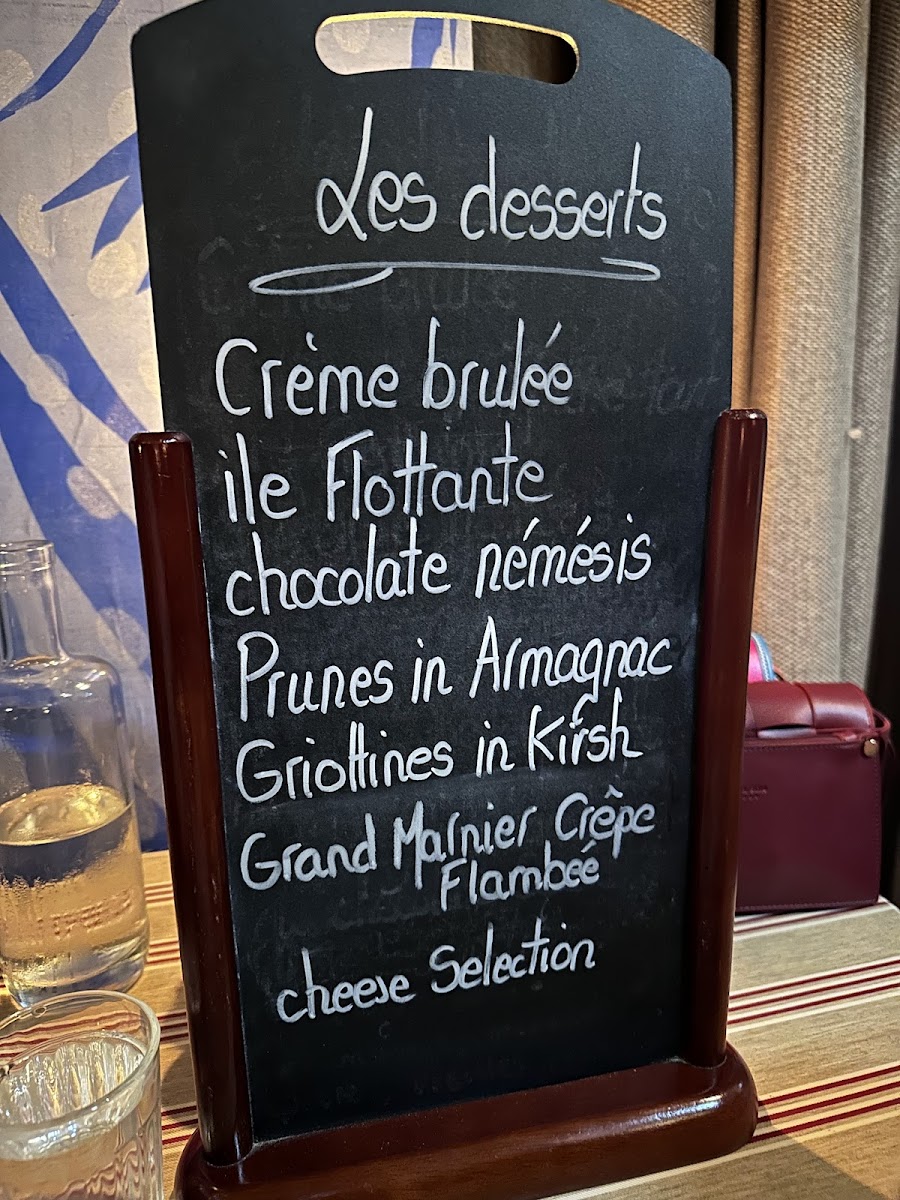 Les desserts
Crème brulée
ile Flottante
chocolate némésis
Prunes in Armagnac
Griottines in Kirsh
Grand Marnier Crêpe
Flambeé
cheese Selection